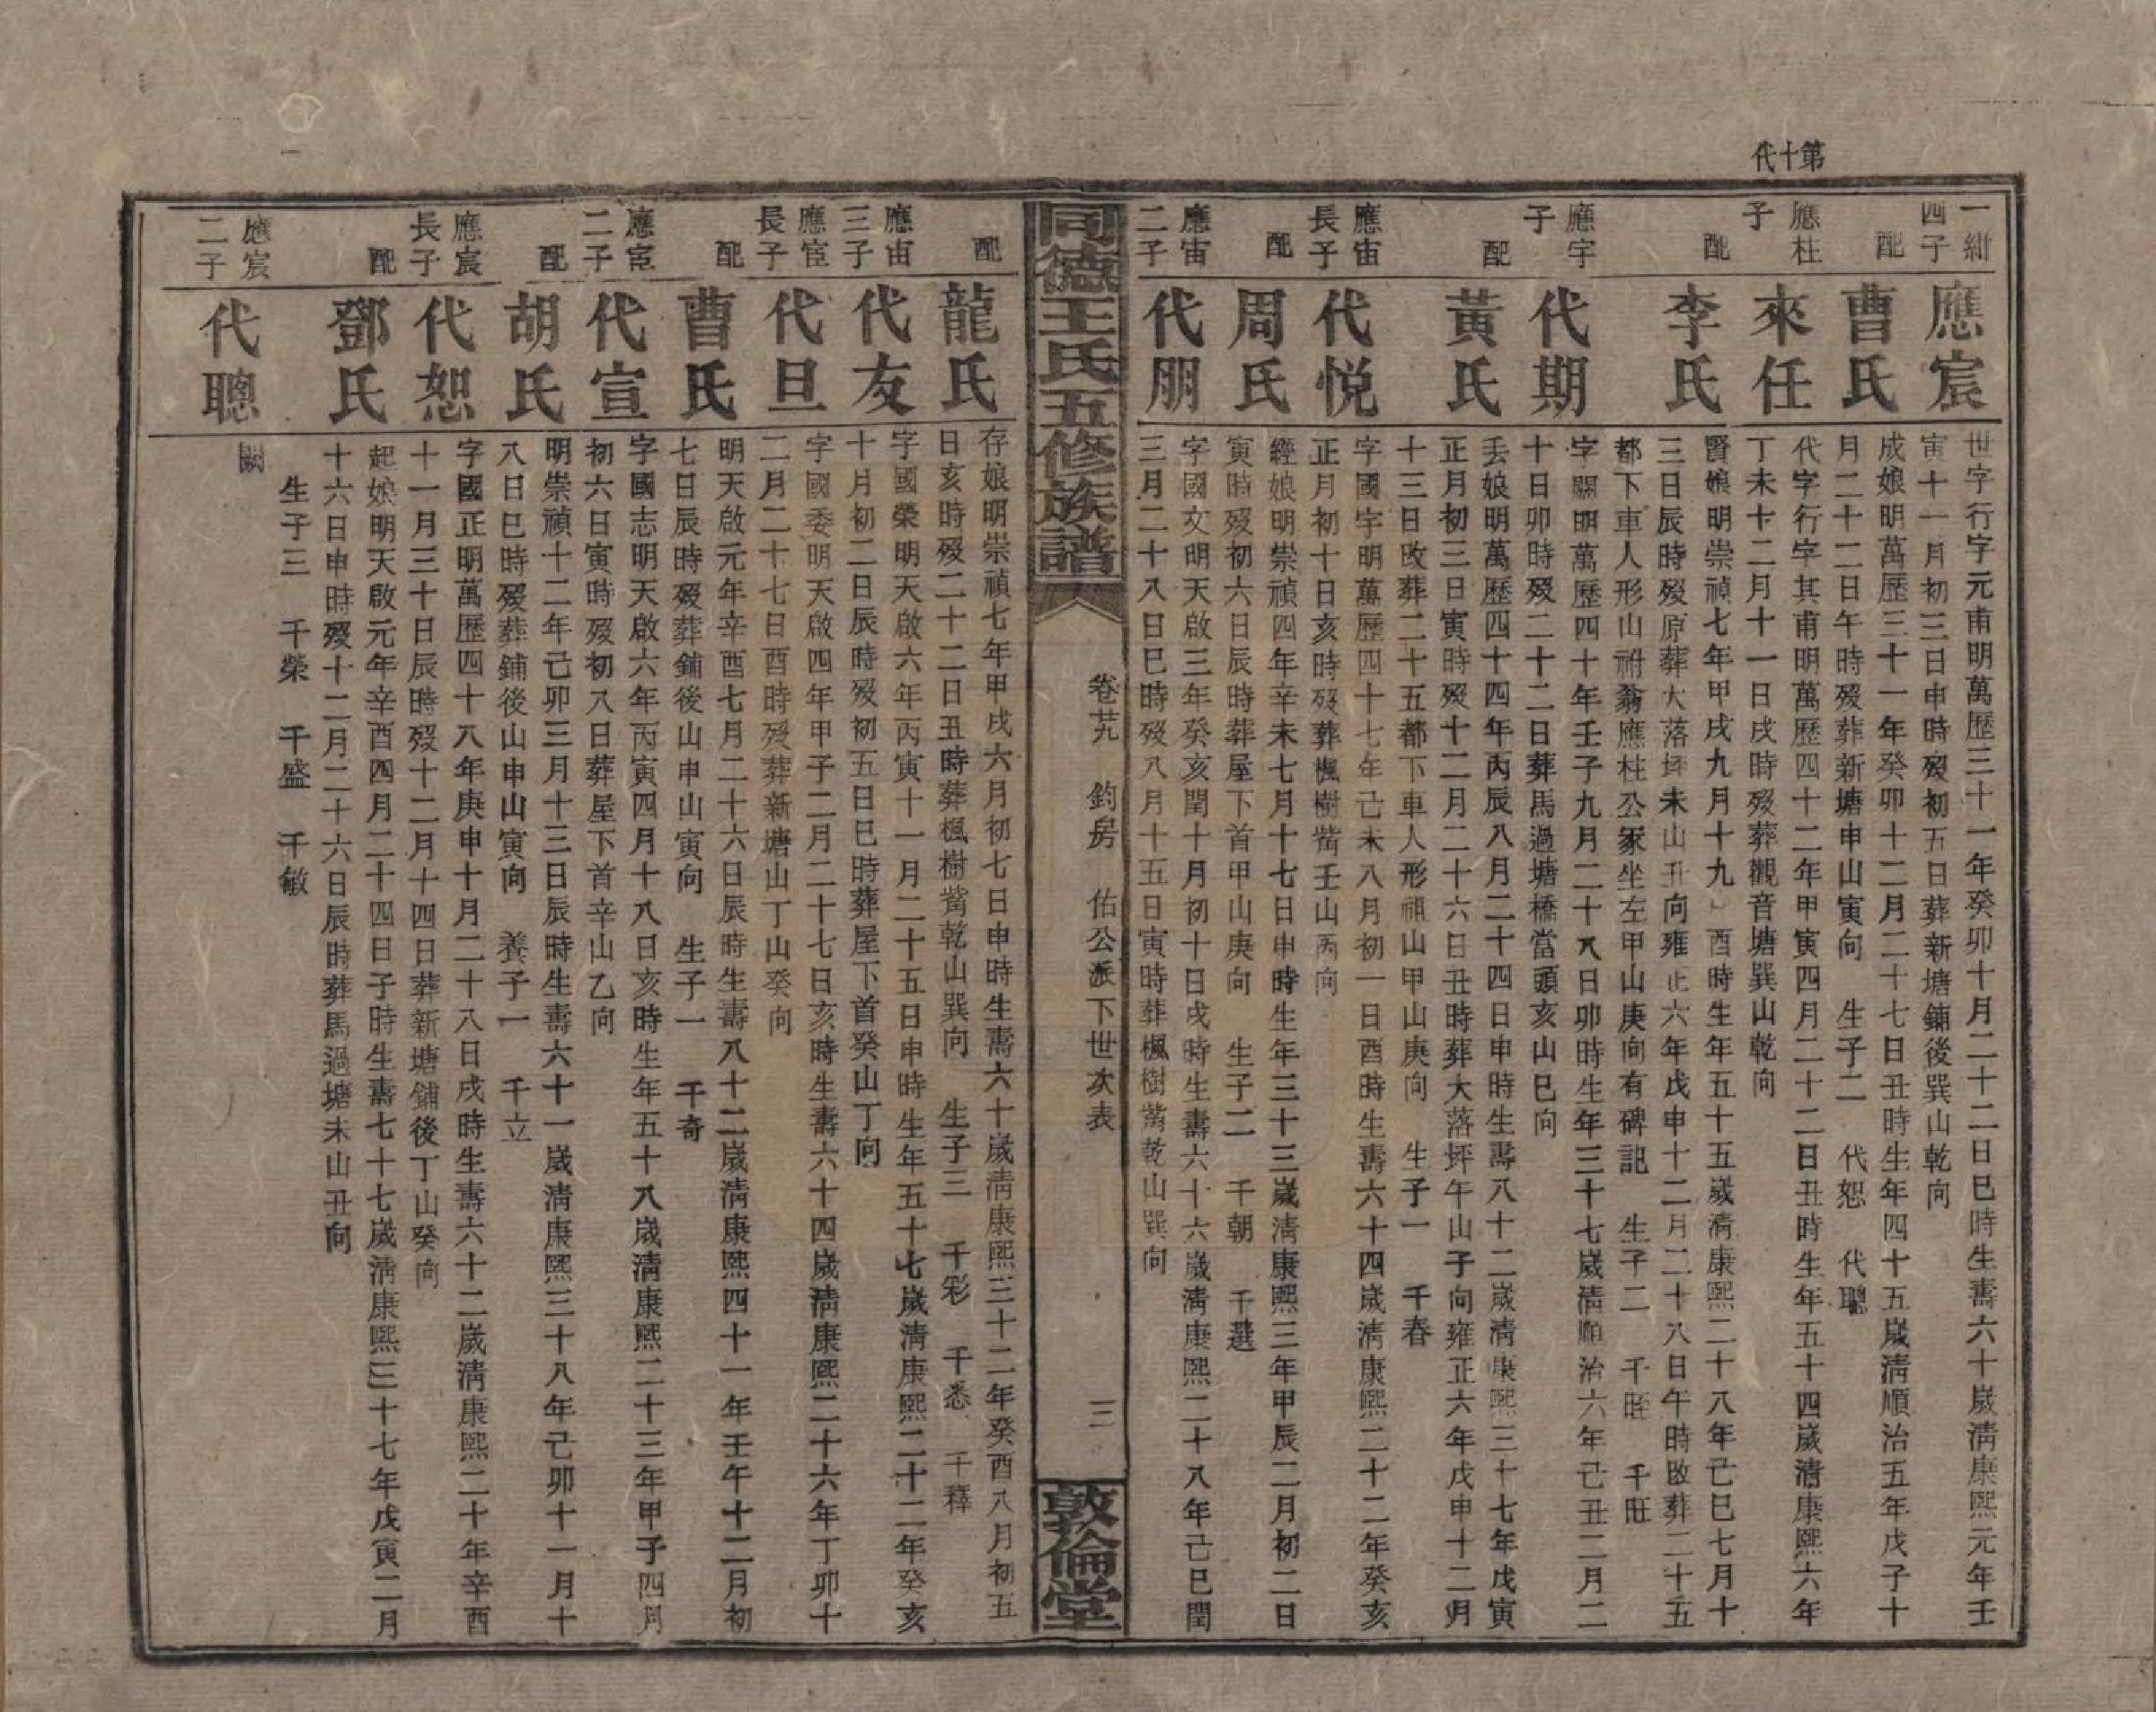 第十代
一紺四子
應宸
世字行字元甫明萬歷三十一年癸卯十月二十二日巳時生壽六十歲清康熙元年壬
寅十一月初三日申時歿初五日葬新塘鋪後巽山乾向
配
曹氏
成娘明萬歷三十一年癸卯十二月二十七日丑時生年四十五歲清順治五年戊子十
月二十二日午時歿葬新塘申山寅向 生子二 代恕 代聰
應柱子
來任
代字行字其甫明萬歷四十二年甲寅四月二十二日丑時生年五十四歲清康熙六年
丁未十二月十一日戌時歿葬觀音塘巽山乾向
配
李氏
賢娘明崇禎七年甲戌九月十九 酉時生年五十五歲清康熙二十八年己巳七月十
三日辰時歿原葬大落坪未山丑向雍正六年戊申十二月二十八日午時改葬二十五
都下車人形山祔翁應柱公冢坐左甲山庚向有碑記 生子二 千晊 千旺
應宇子
代期
字闕明萬歷四十年壬子九月二十八日卯時生年三十七歲清順治六年己丑二月二
十日卯時歿二十二日葬馬過塘橋當頭亥山巳向
配
黃氏
丢娘明萬歷四十四年丙辰八月二十四日申時生壽八十二歲清康熙三十七年戊寅
正月初三日寅時歿十二月二十六日丑時葬大落坪午山子向雍正六年戊申十二月
十三日改葬二十五都下車人形祖山甲山庚向 生子一 千春
應宙長子
代悦
字國字明萬歷四十七年己未八月初一日酉時生壽六十四歲清康熙二十二年癸亥
正月初十日亥時歿葬楓樹嵛壬山丙向
配
周氏
經娘明崇禎四年辛未七月十七日申時生年三十三歲清康熙三年甲辰二月初二日
寅時歿初六日辰時葬屋下首甲山庚向 生子二 千朝 千選
應宙二子
代朋
字國文明天啟三年癸亥閏十月初十日戌時生壽六十六歲清康熙二十八年己巳閏
三月二十八日巳時歿八月十五日寅時葬楓樹嵛乾山巽向
同德王氏五修族譜
卷卄 鈞房 佑公派下世次表
三
敦倫堂
配
龍氏
存娘明崇禎七年甲戌六月初七日申時生壽六十歲清康熙三十二年癸酉八月初五
日亥時歿二十二日丑時葬楓樹嵛乾山巽向 生子三 千彩 千悉 千釋
應宙三子
代友
字國榮明天啟六年丙寅十一月二十五日申時生年五十七歲清康熙二十二年癸亥
十月初二日辰時歿初五日巳時葬屋下首癸山丁向
應宦長子
代旦
字國委明天啟四年甲子二月二十七日亥時生壽六十四歲清康熙二十六年丁卯十
二月二十七日酉時歿葬新塘山丁山癸向
配
曹氏
明天啟元年辛酉七月二十六日辰時生壽八十二歲清康熙四十一年壬午十二月初
七日辰時歿葬鋪後山申山寅向 生子一 千奇
應宦二子
代宣
字國志明天啟六年丙寅四月十八日亥時生年五十八歲清康熙二十三年甲子四月
初六日寅時歿初八日葬屋下首辛山乙向
配
胡氏
明崇禎十二年己卯三月十三日辰時生壽六十一歲清康熙三十八年己卯十一月十
八日巳時歿葬鋪後山申山寅向 養子一 千立
應宸長子
代恕
字國正明萬歷四十八年庚申十月二十八日戌時生壽六十二歲清康熙二十年辛酉
十一月三十日辰時歿十二月十四日葬新塘鋪後丁山癸向
配
鄧氏
起娘明天啟元年辛酉四月二十四日子時生壽七十七歲清康熙三十七年戊寅二月
十六日申時歿十二月二十六日辰時葬馬過塘未山丑向
生子三 千榮 千盛 千敏
應宸二子
代聰
闕